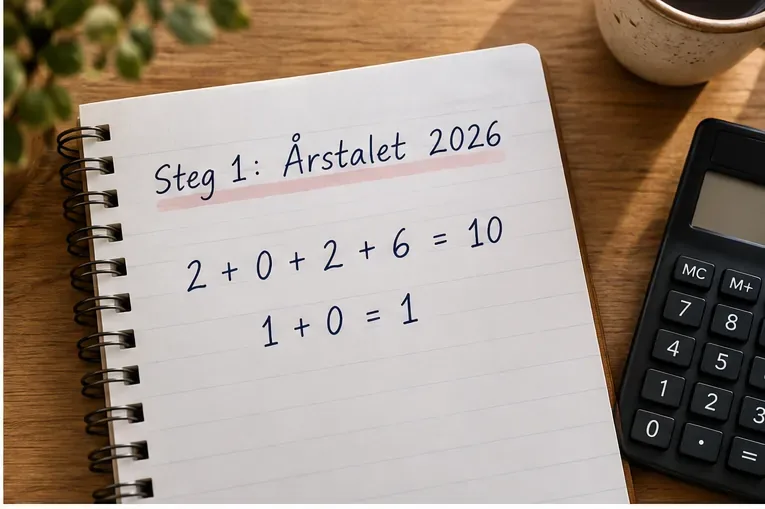 Steg 1: Årstalet 2026
2 + 0 + 2 + 6 = 10
1 + 0 = 1
MC M+
7 8
4 5
1 2 3
0 . =